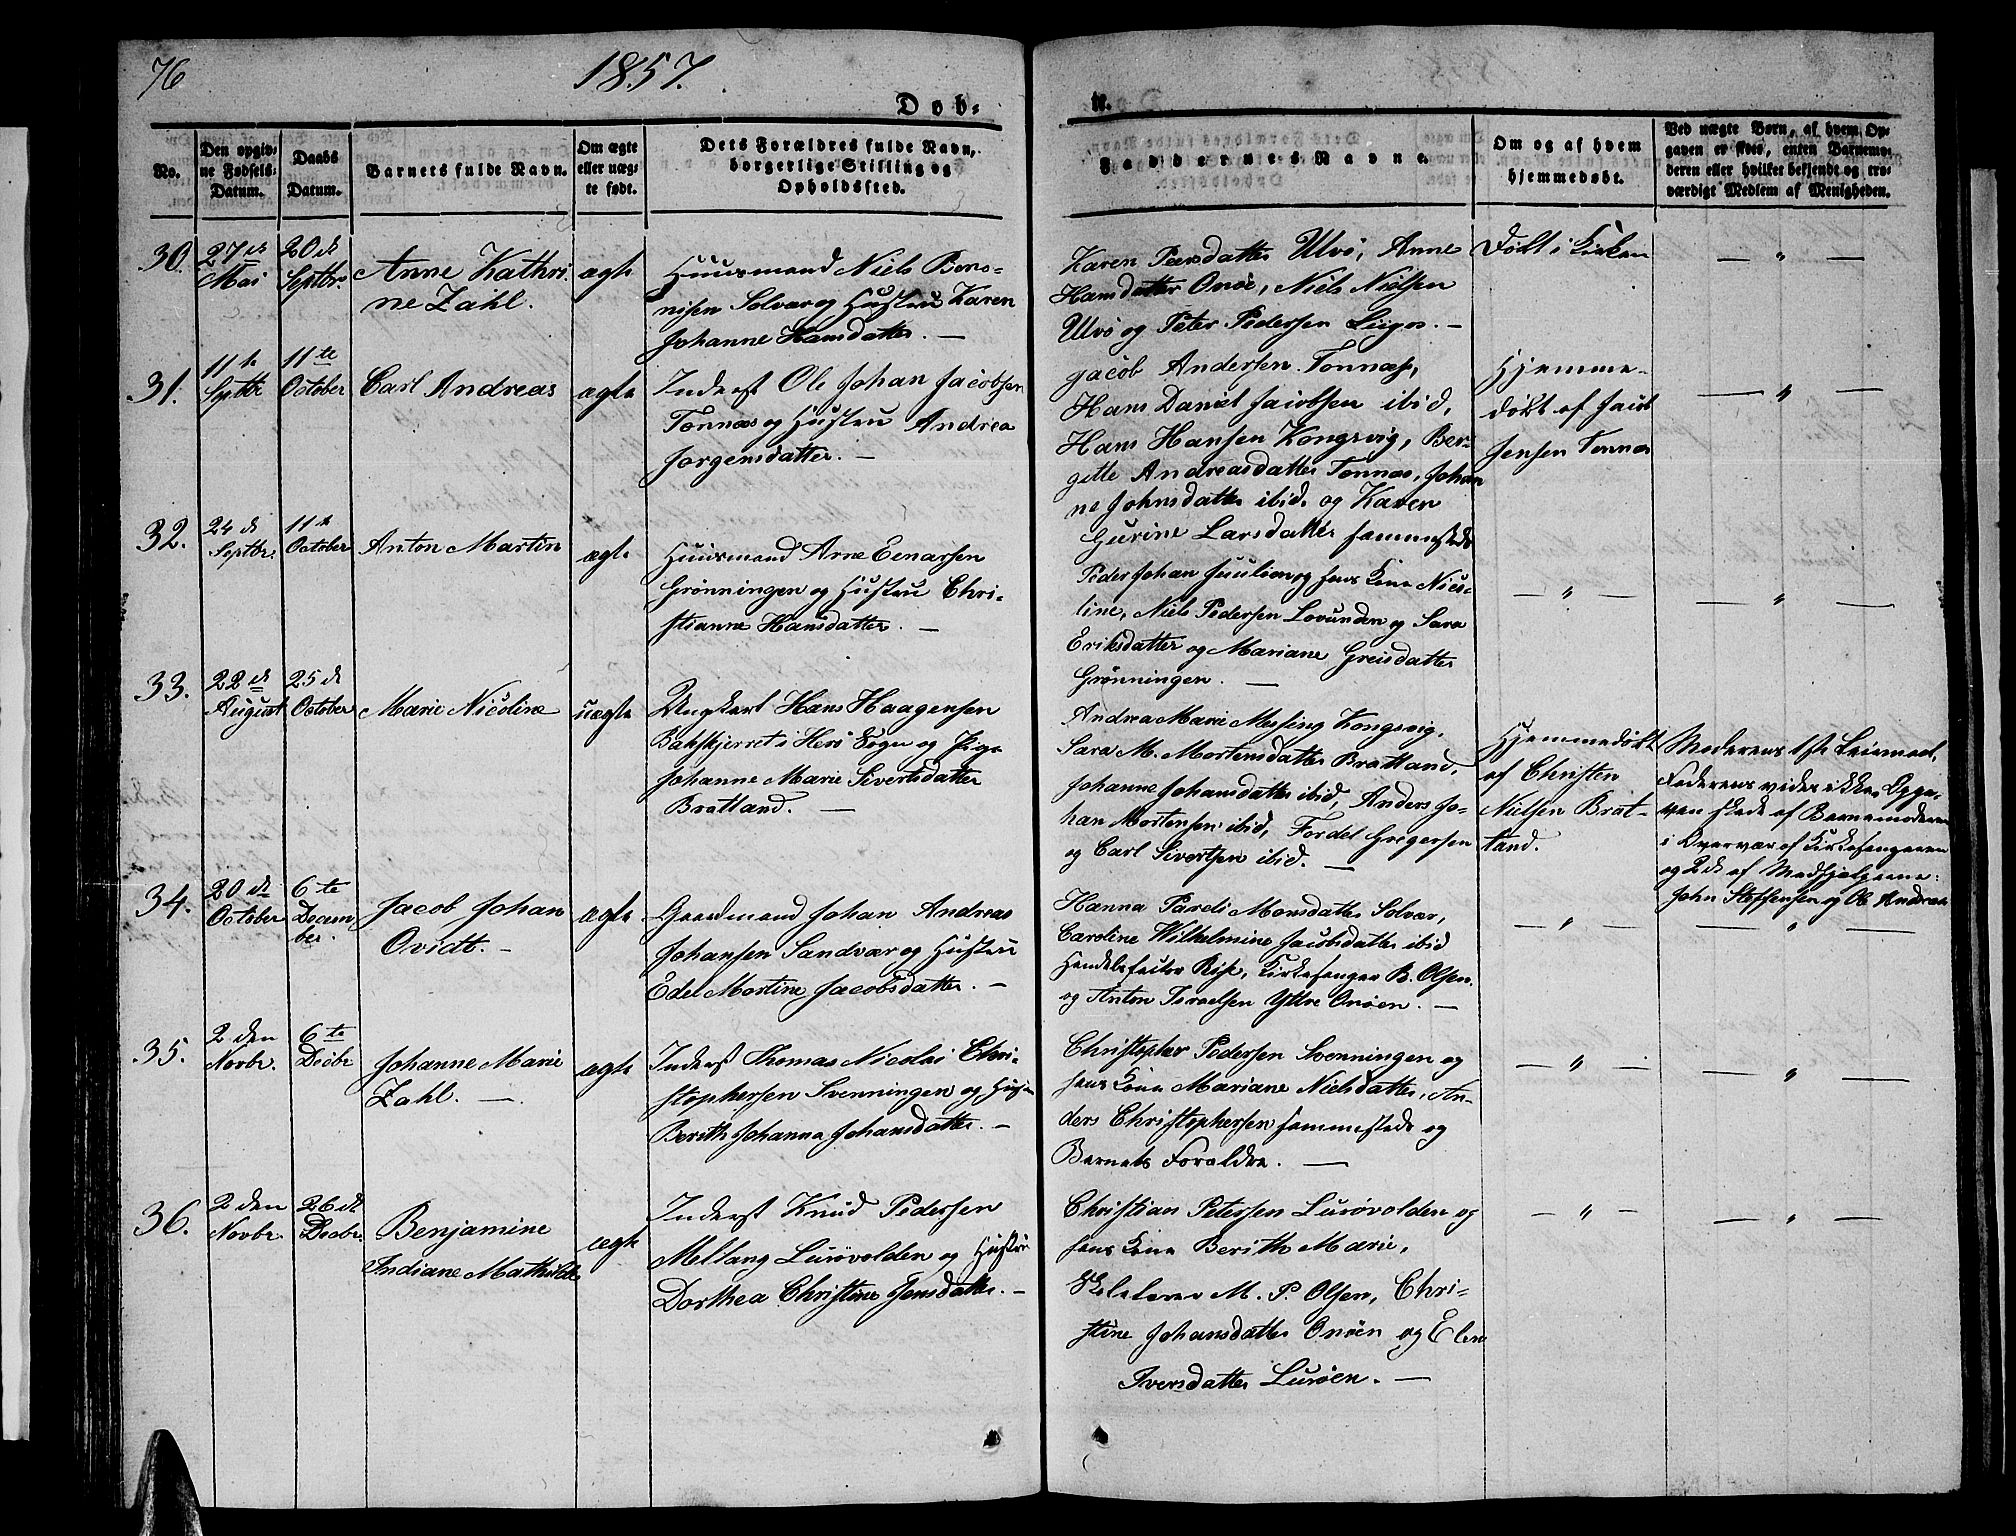 76
1857.
Døb-
te.
No.
Den opgiv-
ne Fødsels-
Datum.
Daabs
Datum.
Barnets fulde Navn.
Om ægte
eller uæg-
te født.
Dets Forældres fulde Navn,
borgerlige Stilling og
Opholdssted.
Faddernes Navne.
Om og af hvem
hjemmedøbt.
Ved uægte Børn, af hvem Op-
gaven er skeet, enten Barnemo-
deren eller hvilket bekjendt og tro-
værdigt Medlem af Menigheden.
30.
27de
Mai
20de
Septbr.
Anne Kathri-
ne Zahl.
ægte
Huusmand Niels Bero-
nisen Solvær og Hustru Karen
Johanne Hansdatter. —
Karen Peersdatter Ulvø, Anne
Hansdatter Onøe, Niels Nielsen
Ulvø og Peter Pedersen Lugn. —
Døbt i Kirken
— " —
31.
11te
Septbr
11te
October
Carl Andreas
ægte
Inderst Ole Johan Jacobsen
Tonnæs og Hustru Andrea
Jørgensdatter. —
Jacob Andersen Tonnæs,
Hans Daniel Jacobsen ibid,
Hans Hansen Kongsvig, Ber-
gitte Andreasdatter Tonnæs, Johan
ne Johnsdatter ibid. og Karen
Gurine Larsdatter sammesteds
Hjemme-
døbt af Jacob
Jensen Tonnæs
— " —
32.
24de
Septbr.
11te
October
Anton Martin
ægte
Huusmand Arne Einarsen
Grønningen og Hustru Chri-
stianne Hansdatter. —
Peder Johan Juulien og hans Kone Nico-
line, Niels Pedersen Lovunden og Sara
Eriksdatter og Mariane Greisdatter
Grønningen. —
— " —
— " —
33.
22de
August
25de
October
Marie Nicoline
uægte
Ungkarl Hans Haagensen
Bakskjerret i Herø Sogn og Pige
Johanne Marie Sivertsdatter
Bratland. —
Andrea Marie Messing Kongsvig,
Sara M. Mortensdatter Bratland,
Johanne Johansdatter ibid, Anders Jo-
han Mortensen ibid, Fordel Gregersen
og Carl Sivertsen ibid. —
Hjemmedøbt
af Christen
Nielsen Brat-
land.
Moderens 1ste Leiermaal,
Faderens vides ikke. Opga-
ven skede af Barnemoderen
i Overvær af Kirkesangeren
og 2de af Medhjælperne:
John Steffensen og Ole Andreas
34.
20de
October
6te
Decem
ber.
Jacob Johan
Ovidt. —
ægte
Gaardmand Johan Andreas
Johansen Sandvær og Hustru
Edel Martine Jacobsdatter. —
Hanna Pareli Monsdatter Solvær,
Caroline Wilhelmine Jacobsdatter ibid
Handelsfactor Riis, Kirkesanger B. Olsen
og Anton Israelsen Yttre Onøen. —
— " —
— " —
35.
2den
Novbr.
6te
Decbr
Johanne Marie
Zahl. —
ægte
Inderst Thomas Nicolai Chri-
stophersen Svenningen og Hust
Berith Johanna Johansdatter. —
Christopher Pedersen Svenningen og
hans Kone Mariane Nielsdatter, An-
ders Christophersen sammesteds og
Barnets Forældre. —
— " —
— " —
36.
2den
Novbr.
26de
Decbr.
Benjamine
Indiane Mathilde
ægte
Inderst Knud Pedersen
Mellang Lurøvolden og Hustru
Dorthea Christine Jensdatter. —
Christian Petersen Lurøvolden og
hans Kone Berith Marie,
Skolelærer M. P. Olsen, Chri-
stine Johansdatter Onøen og Elen
Iversdatter Lurøen. —
— " —
— " —